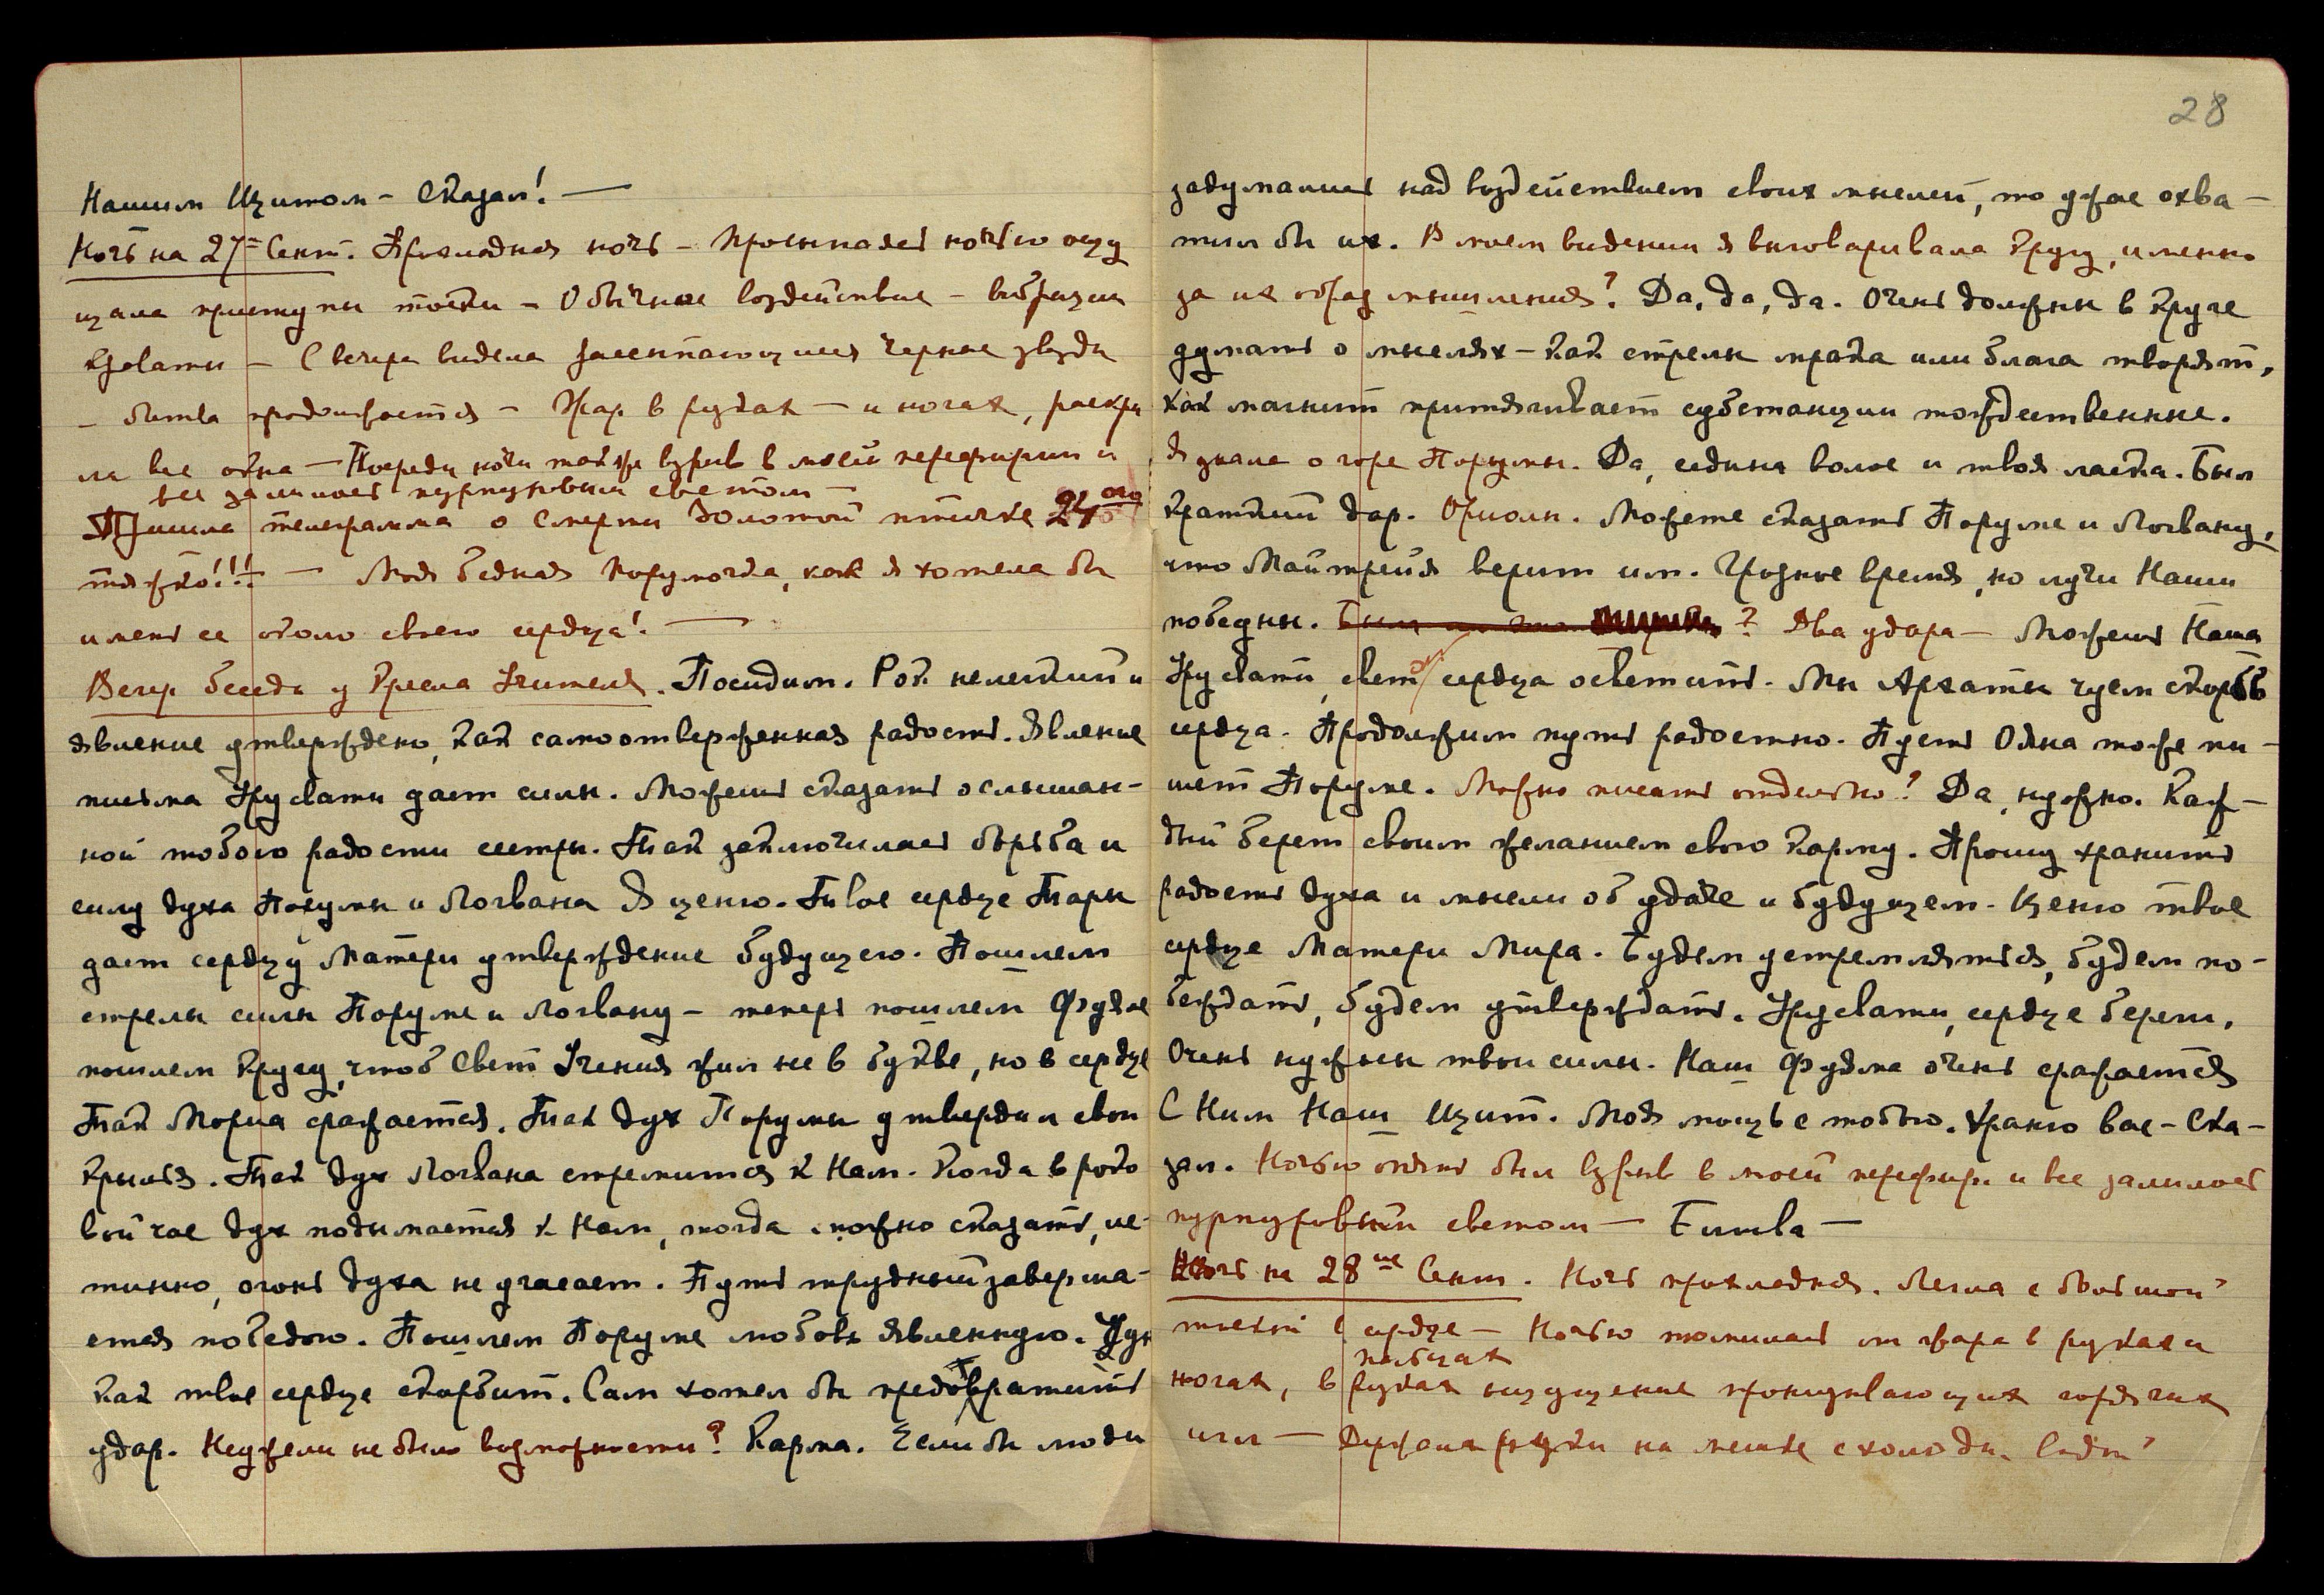 Нашим Щитом – Сказал! —
Ночь на 27ое Сент. Прохладная ночь – Просыпаясь ночью ощу
щала приступы тоски – Обычное воздействие – вибрации
кровати – С вечера видела рассыпающиеся черные звезды
– битва продолжается – Жар в руках – и ногах, раскры
ла все окна – Посреди ночи так же взрыв в моей периферии и
все залилось пурпуровым светом –
Пришла телеграмма о смерти золотой птички 24ого
тяжко!!! – Моя бедная Порумочка, как я хотела бы
иметь ее около своего сердца! —
Вечер. беседа у Кресла Учителя. Посидим. Рок нелегкий и
явление утверждено, как самоотверженная радость. Явление
письма Урусвати дает силы. Можешь сказать о слышан-
ной тобою радости сестры. Так заключилась борьба и
силу духа Порумы и Логвана Я ценю. Твое сердце Тары
дает сердцу Матери утверждение будущего. Пошлем
стрелы силы Поруме и Логвану – теперь пошлем Фудяме
пошлем Кругу, чтоб Свет Учения жил не в букве, но в сердце
Так Мориа сражается. Так дух Порумы утвердил свои
крылья. Так дух Логвана стремится к Нам. Когда в роко
вой час дух подымается к Нам, тогда можно сказать, ис-
тинно, огонь духа не угасает. Путь трудный заверша-
ется победою. Пошлем Поруме любовь явленную. Чую
как твое сердце скорбит. Сам хотел бы предотвратить
удар. Неужели не было возможности? Карма. Если бы люди
28
задумались над воздействием своих мыслей, то ужас охва-
тил бы их. В моем видении я выговаривала Кругу, именно
за их образ мышления? Да, да, да. Очень должны в Круге
думать о мыслях – как стрелы мрака или блага творят,
как магнит притягивает субстанции тождественные.
Я знала о горе Порумы. Да, едины волос и твоя ласка. Был
краткий дар. Ориолы. Можете сказать Поруме и Логвану,
что Майтрейя верит им. Грозное время, но лучи Наши
победны. ? Два удара – Можешь Наша
Урусвати, свет сердца осветить. Мы Архаты чуем скорбь
сердца. Продолжим путь радостно. Пусть Ояна тоже пи-
шет Поруме. Можно писать отдельно? Да, нужно. Каж-
дый берет своим желанием свою Карму. Прошу хранить
радость духа и мысли об удаче и будущем. Ценю твое
сердце Матери Мира. Будем устремляться, будем по-
беждать, будем утверждать. Урусвати, сердце береги.
Очень нужны твои силы. Наш Фудяма очень сражается
С Ним Наш Щит. Моя мощь с тобою. Храню вас – Ска-
зал. Ночью опять был взрыв в моей периферии и все залилось
пурпуровым светом — Битва —
Ночь на 28ое Сент. Ночь прохладная. Легла с большой
тоской в сердце – Ночью томилась от жара в руках и
пальцах
ногах, в руках ощущение пронизывающих горячих
игл — Держала руки на мешке с холодн. водой